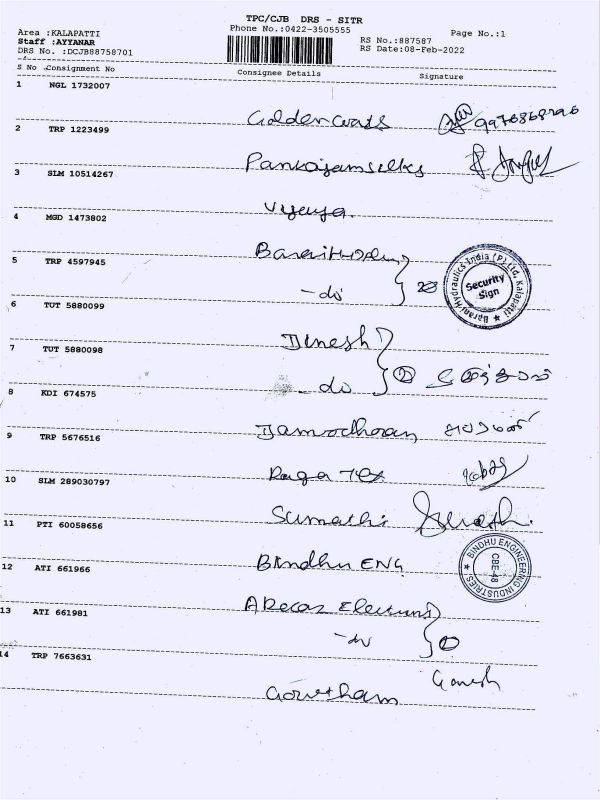 TPC/CJB DRS - SITR
Area :KALAPATTI
Phone No.:0422-3505555
Page No.:1
Staff :AYYANAR
RS No.:887587
DRS No. :DCJB88758701
RS Date:08-Feb-2022
S No Consignment No Consignee Details Signature
1 NGL 1732007
Golden 9976868796
2 TRP 1223499
Pankajam silks
3 SLM 10514267
Vijaya.
4 MGD 1473802
5 TRP 4597945
Barani Hydraulics India (P) Ltd, Kalapatti
Security
Sign
-do
6 TUT 5880099
Dinesh
7 TUT 5880098
-do
8 KDI 674575
Damodharan
9 TRP 5676516
Raga Tex
10 SLM 289030797
Sumathi
11 PTI 60058656
Bindhu ENG
BINDHU ENGINEERING INDUSTRIES
CBE-48
12 ATI 661966
13 ATI 661981
-do
14 TRP 7663631
Ganesh
Gowtham